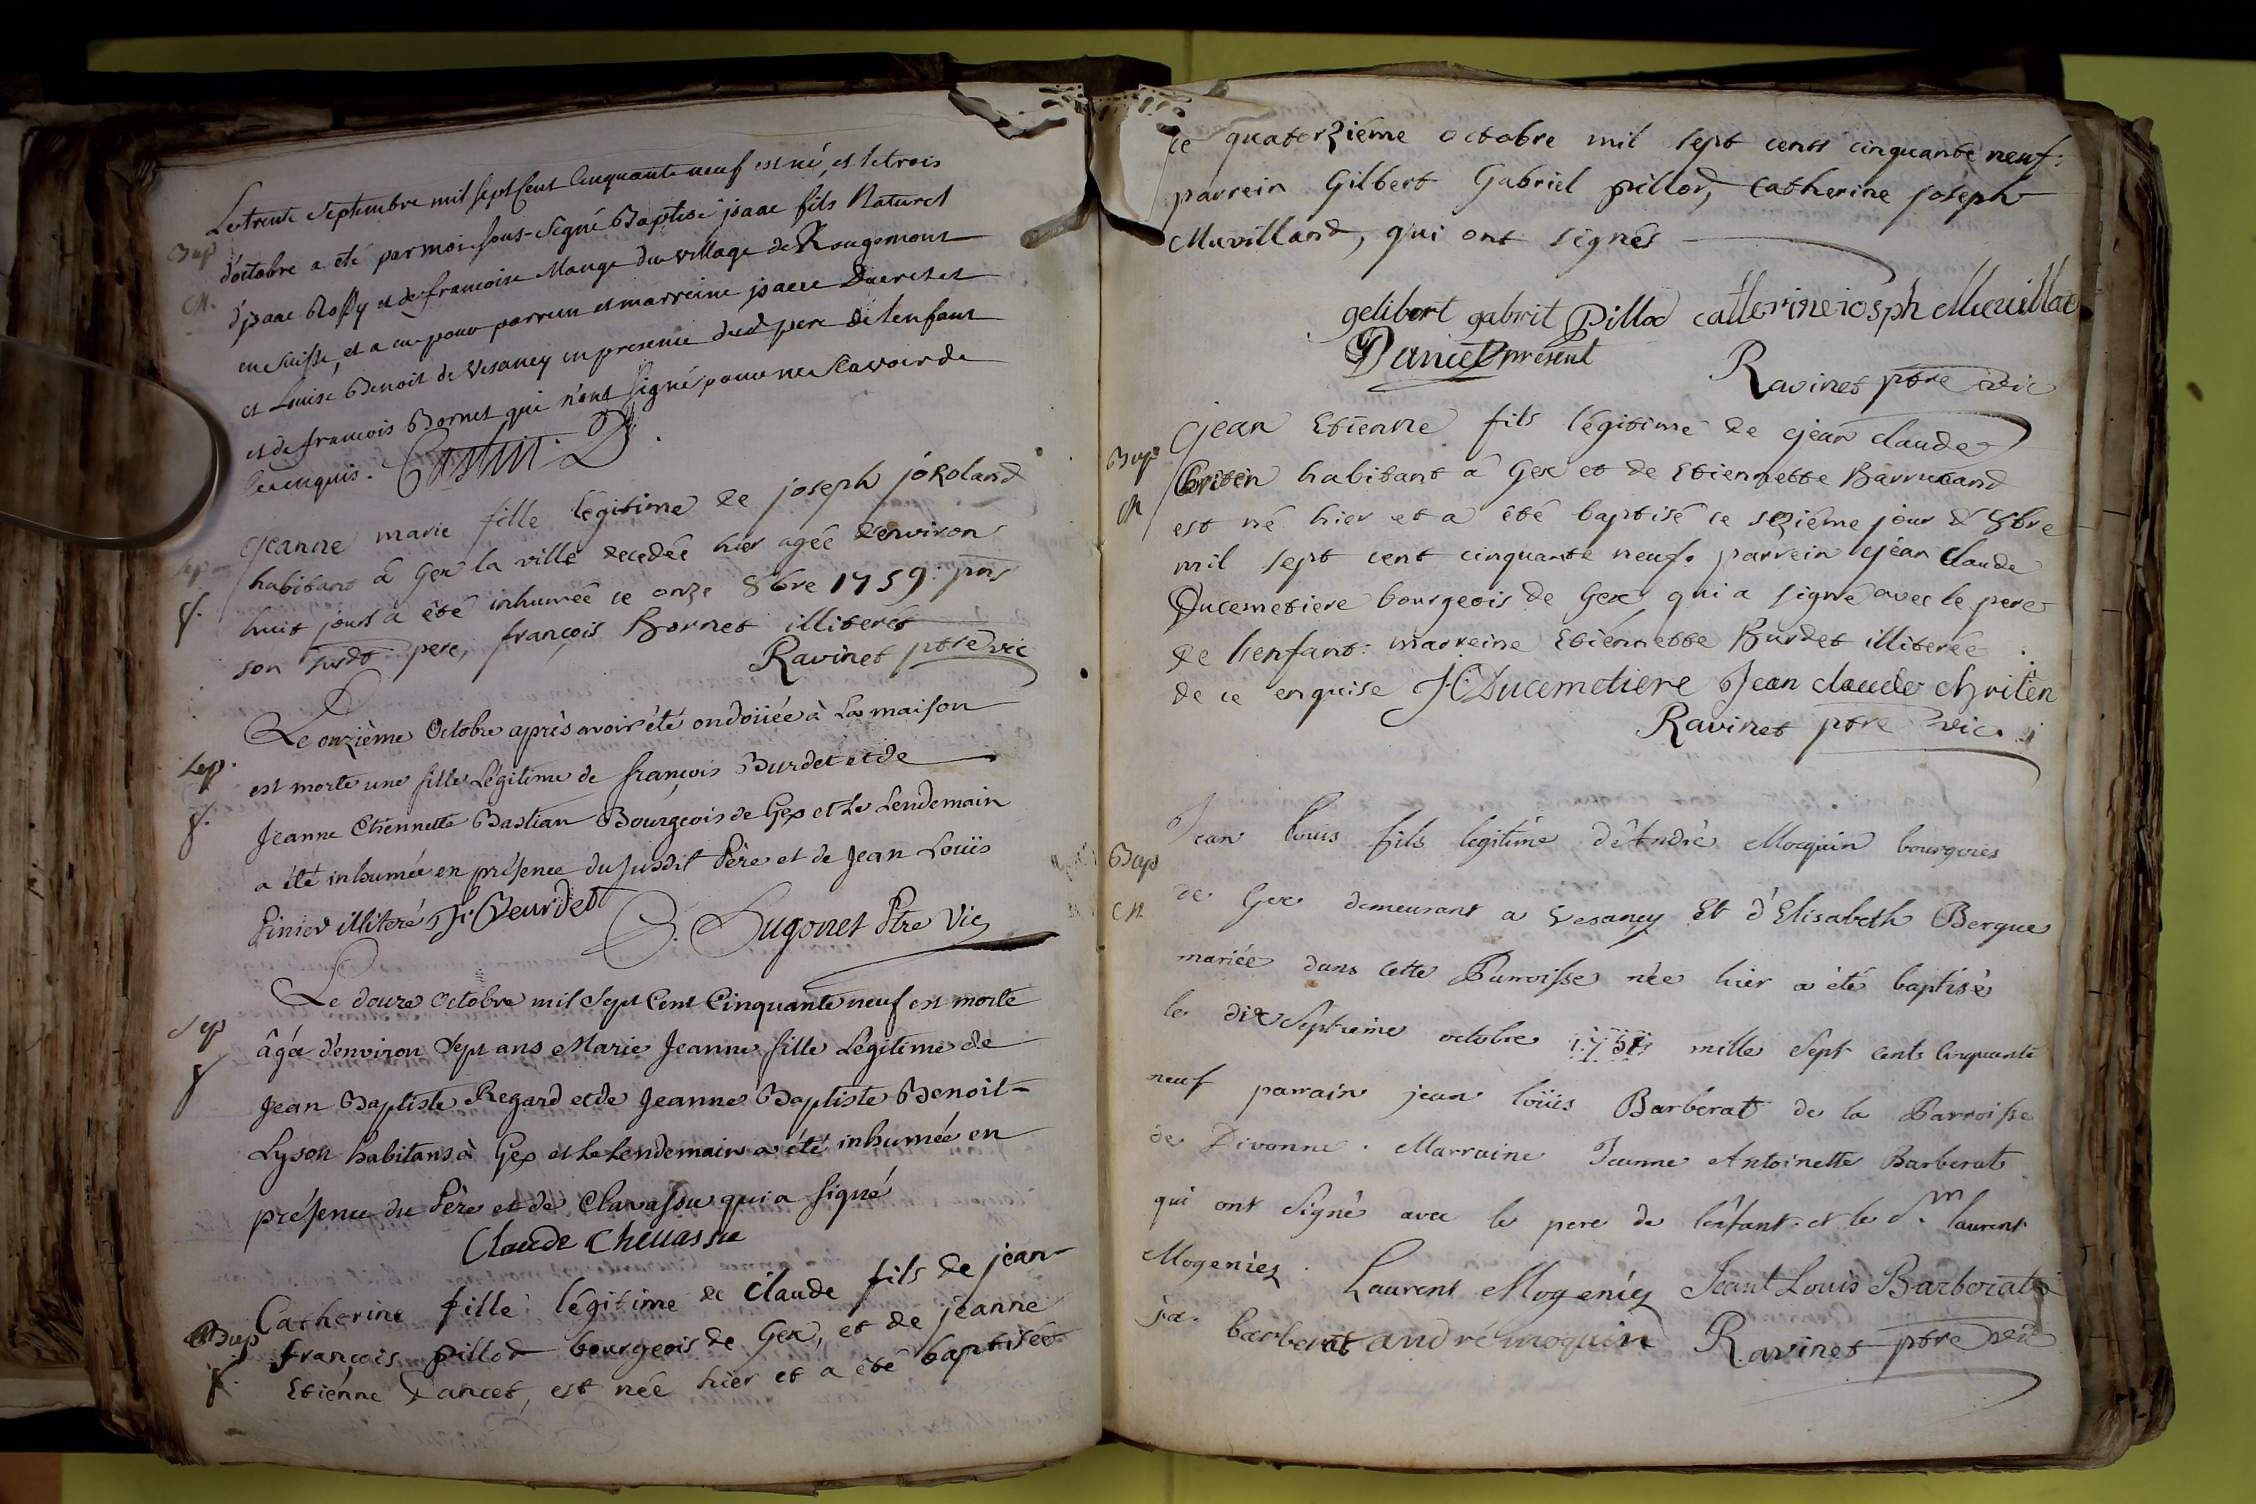 Le trente Septembre mil sept Cent Cinquante neuf est né, et le trois
Bap d'octobre a eté par moi sous-signé Baptisé jsaac fils Naturel
M. d'jsaac Rossy et de francoise Mange du village de Rougemont
en Suisse, et a eu pour parrein et marreine jsaac
et Louise Benoit de Vesancy en presence dud pere de lenfant
et de francois Bornet qui n'ont signé pour ne scavoir de
ce enquis. Castin D
Jeanne marie fille légitime de joseph joRoland
Sep habitant â Gex la ville decedée hier agée d'environ
f. huit jours a êté inhumée ce onze 8bre 1759. pns
son susdt pere, françois Bornet illiterés
Ravinet ptre vic
Le onzième Octobre après avoir été ondoïiée à La maison
Sep. est morte une fille Légitime de françois Burdet et de
f. Jeanne Etiennette Bastian Bourgeois de Gex et Le Lendemain
a été inhumée en présence du susdit Père et de Jean Louïs
Pinier illiteré Fr. Beurdet D. Sugonet Ptre Vic
Le douze Octobre mil Sept Cent Cinquante neuf est morte
Sep âgée d'environ Sept ans Marie Jeanne fille Légitime de
f Jean Baptiste Regard et de Jeanne Baptiste Benoit-
Lyson habitans à Gex et Le Lendemain a été inhumée en
présence du Père et de Chavassu qui a signé
Claude Chevassu
Catherine fille légitime de Claude fils de jean-
Bap françois pillod bourgeois de Gex, et de jeanne
f. Etiénne Dancet, est née hier et a êté baptisée
ce quatorziéme octobre mil sept cents cinquante neuf:
parrein Gilbert Gabriel pillod, Catherine joseph
Muvilland, qui ont signés
gelibert gabrit Pillod catterine iosph Muvillat
Dancet present Ravinet ptre vic
Jean Etienne fils légitime de jean claude
Bap Criten habitant â Gex et de Etiennette Barrucand
M est né hier et a êté baptisé ce seziéme jour d 8bre
mil sept cent cinquante neuf. parrein jean Claude
Ducemetiere bourgeois de Gex, qui a signé avec le pere
de lenfant: marreine Etiénnette Burdet illiterée
de ce enquise J: C Ducemetiere Jean claude chriten
Ravinet ptre vic.
Jean louis fils legitime d'André Moquin bourgois
Bap de Gex demeurant a Vesancy Et d'Elisabeth Bergue
M. mariée dans cette Parroisse née hier a èté baptisè
le dix Septieme octobre mille Sept cents cinquante
neuf parrain jean loüis Barberat de la Parroisse
de Divonne. Marraine Jeanne Antoinette Barberat
qui ont Signè avec le pere de lêfant. et le Sr. laurent
Mogeniez. Laurent Mogeniez Jeant Louis Barberat
ja. barberat andré moquin Ravinet ptre vic